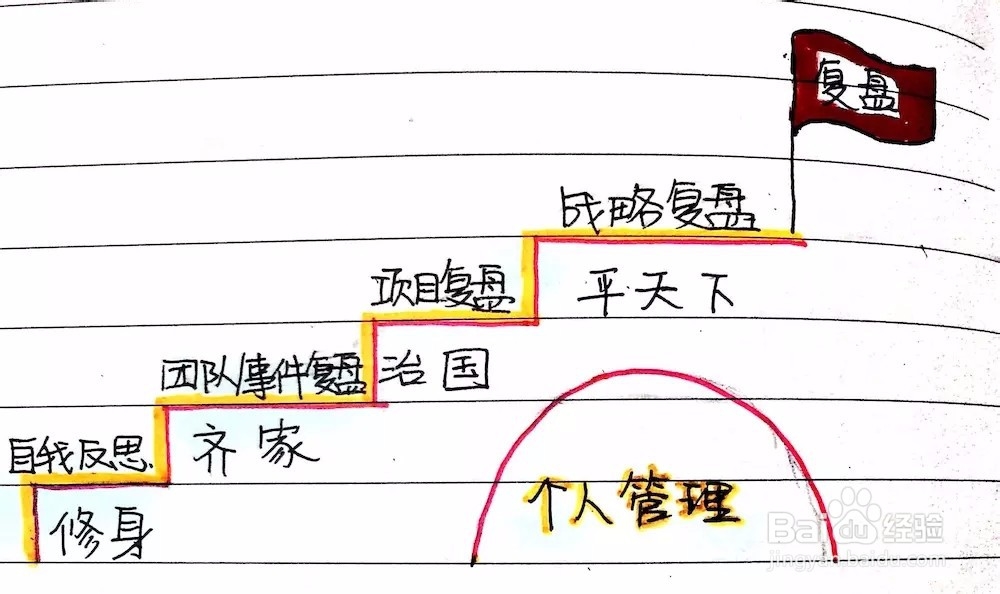 复盘
战略复盘
平天下
项目复盘
治国
团队事件复盘
齐家
自我反思
修身
个人管理
Baidu经验
jingyan.baidu.com